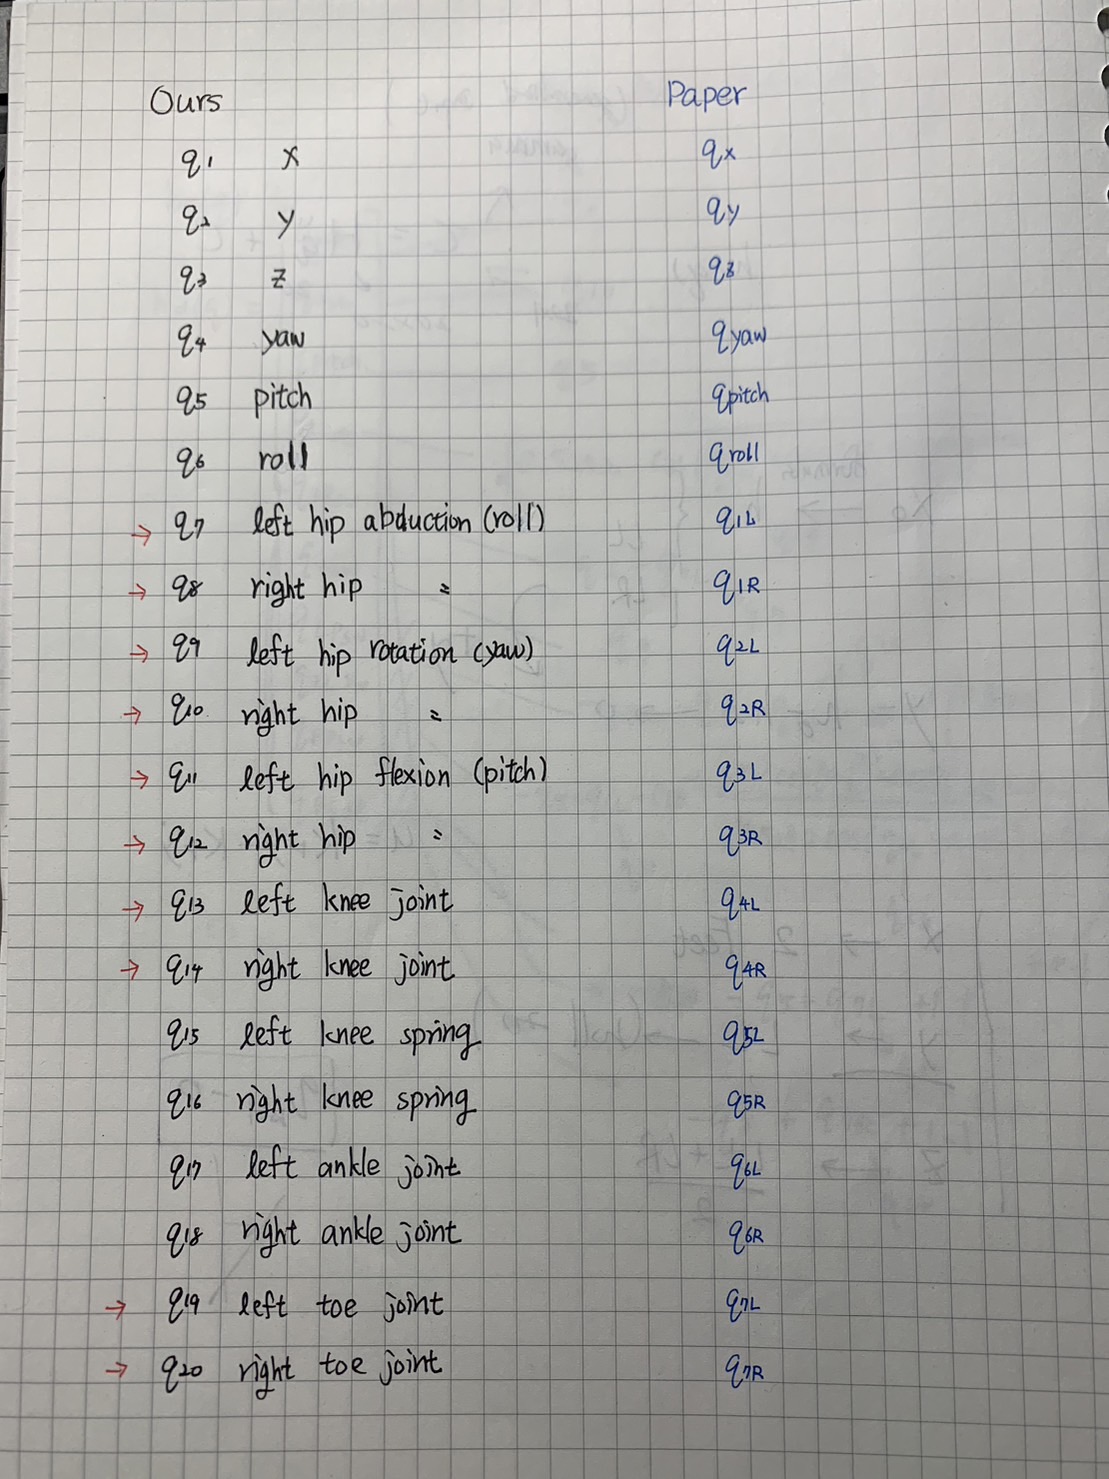 Ours Paper
q1 x qx
q2 y qy
q3 z qz
q4 yaw qyaw
q5 pitch qpitch
q6 roll qroll
→ q7 left hip abduction (roll) q1L
→ q8 right hip 〃 q1R
→ q9 left hip rotation (yaw) q2L
→ q10 right hip 〃 q2R
→ q11 left hip flexion (pitch) q3L
→ q12 right hip 〃 q3R
→ q13 left knee joint q4L
→ q14 right knee joint q4R
q15 left knee spring q5L
q16 right knee spring q5R
q17 left ankle joint q6L
q18 right ankle joint q6R
→ q19 left toe joint q7L
→ q20 right toe joint q7R